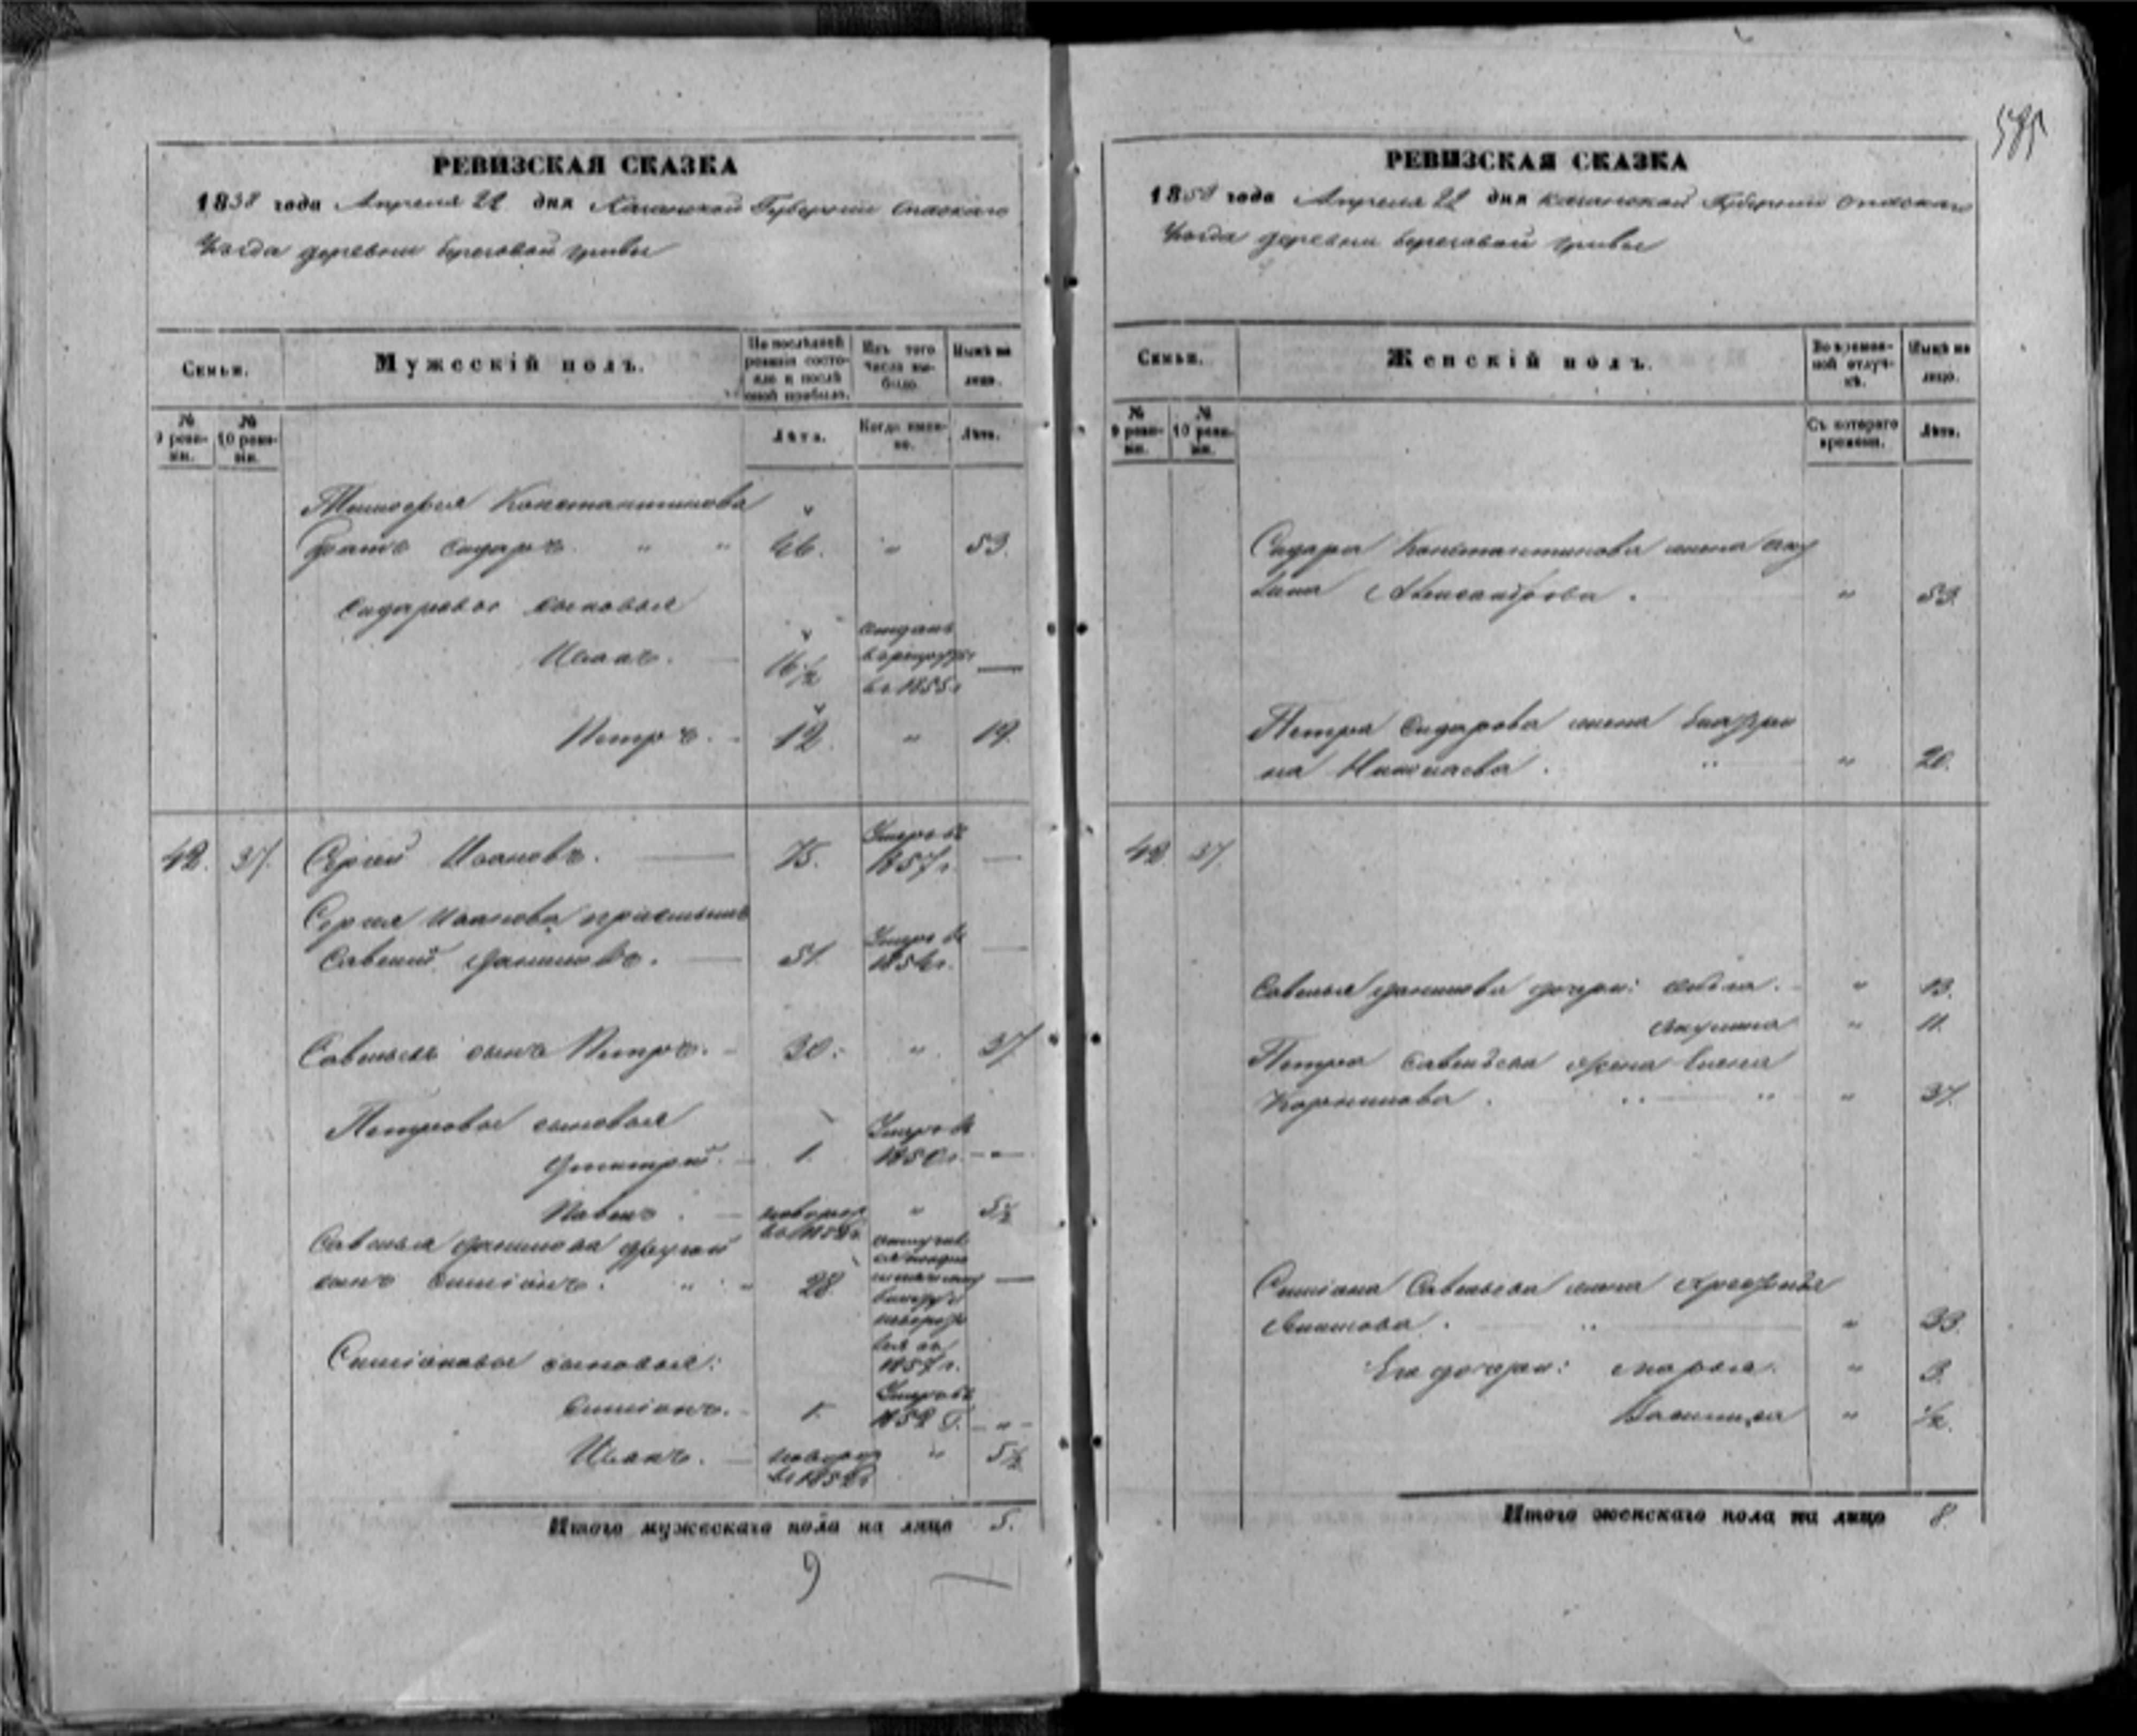 РЕВИЗСКАЯ СКАЗКА
1858 года Апреля 22 дня Казанской Губернии Спаскаго
Уѣзда деревни Береговой Гривы
Семьи.
Мужескій полъ.
По послѣдней ревизіи состояло и послѣ оной прибыло.
Изъ того числа выбыло.
Нынѣ на лицо.
№ 9 ревизіи.
№ 10 ревизіи.
Лѣта.
Когда именно.
Лѣта.
Тимофея Константинова
братъ Сидаръ " " 46. " 53.
Сидаровы сыновья
Иванъ. 16½ отданъ в рекруты въ 1855 г —
Петръ. 12. " 19.
42. 37. Сергей Ивановъ. 75. Умеръ въ 1857 г. —
Сергея Иванова приемышъ
Савелий Даниловъ. 51 Умеръ въ 1856 г. —
Савельевъ сынъ Петръ. 30. " 37.
Петровы сыновья
Дмитрий. 1. Умеръ въ 1850 г. —
Павелъ. новорож въ 1852 г. " 5½
Савелья Данилова другой
сынъ Симіонъ. " " 28 —
1857 г.
Симіоновы сыновья:
Симіонъ. 1. Умеръ въ 1852 г. "
Иванъ. новорож въ 1852 г " 5½
Итого мужескаго пола на лицо 5.
9
585
РЕВИЗСКАЯ СКАЗКА
1858 года Апреля 22 дня Казанской Губернии Спаскаго
Уѣзда деревни Береговой Гривы
Семьи.
Женскій полъ.
Во временной отлучкѣ.
Нынѣ на лицо.
№ 9 ревизіи.
№ 10 ревизіи.
Съ котораго времени.
Лѣта.
Сидара Константинова жена Аку
лина Александрова. " 53.
Петра Сидарова жена
на Николаева. " " 20.
42. 37.
Савелья Данилова дочери: " 13.
Акулина " 11.
Петра Савельева жена Елена
Корнилова. " " " 37.
Симіона Савельева жена
" " 33.
Его дочери: Марья. " 3.
Василиса " ½.
Итого женскаго пола на лицо 8.